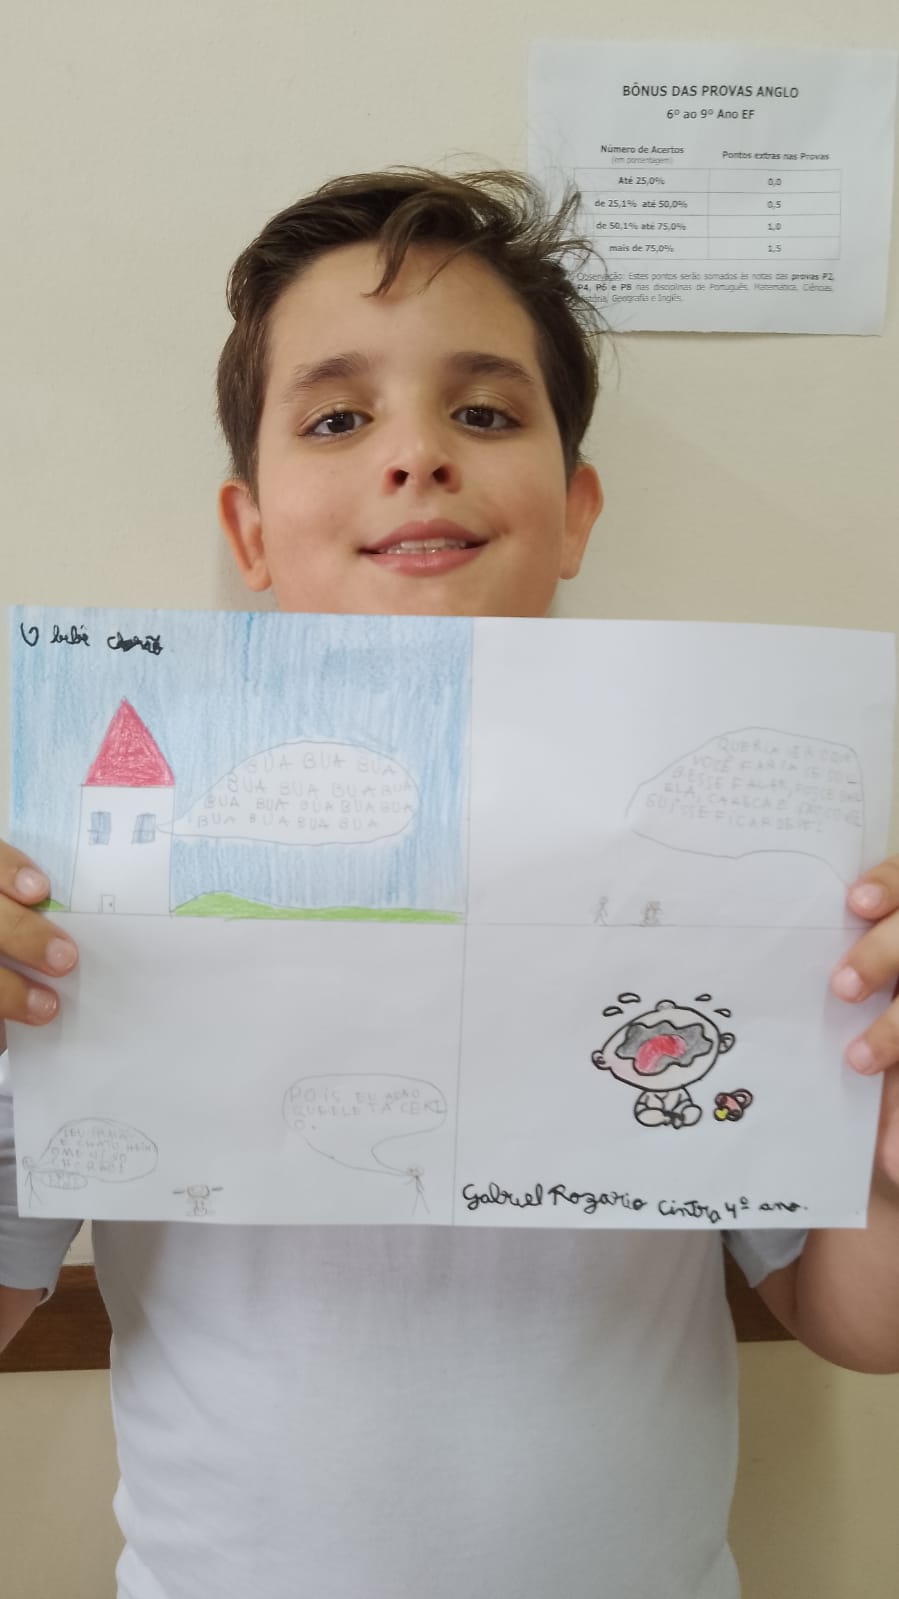 BÔNUS DAS PROVAS ANGLO
6º ao 9º Ano EF
Número de Acertos Pontos extras nas Provas
(em porcentagem)
Até 25,0% 0,0
de 25,1% até 50,0% 0,5
de 50,1% até 75,0% 1,0
mais de 75,0% 1,5
Observação: Estes pontos serão somados às notas das provas P2,
P4, P6 e P8 nas disciplinas de Português, Matemática, Ciências,
História, Geografia e Inglês.
O bebê chorão
BUA BUA BUA
BUA BUA BUA BUA
BUA BUA BUA BUA BUA
BUA BUA BUA BUA
QUERIA
VOCÊ FARIA SE
FALER
ELA, CARECA E
FICAR DE PÉ
POIS EU ACHO
QUE ELE TÁ CERT
O.
SEU IRMÃO
É CHATO, HEIN
Gabriel Rozario Cintra 4º ano.